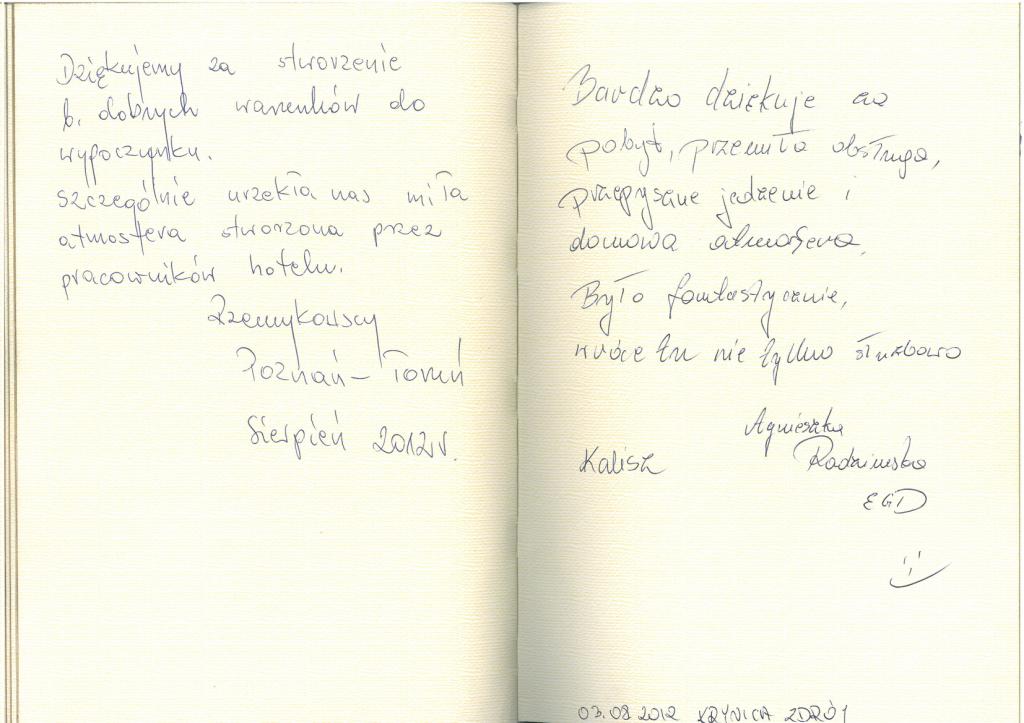 Dziękujemy za stworzenie
b. dobrych warunków do
wypoczynku.
Szczególnie urzekła nas miła
atmosfera stworzona przez
pracowników hotelu.
Rzemykowscy
Poznań – Toruń
Sierpień 2012 r.
Bardzo dziękuje za
pobyt, przemiła obsługa,
przepyszne jedzenie i
domowa atmosfera.
Było fantastycznie,
wrócę tu nie tylko służbowo
Agnieszka
Kalisz Radzimska
EGD
03.08.2012 KRYNICA ZDRÓJ